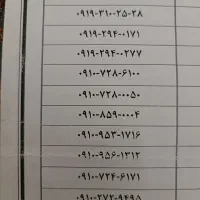 ۰۹۱۹-۳۱۰-۲۵-۲۸
۰۹۱۹-۲۹۴-۰۱۷۱
۰۹۱۹-۲۹۴-۰۲۷۷
۰۹۱۰-۷۲۸-۶۱۰۰
۰۹۱۰-۷۲۸-۰۰۵۰
۰۹۱۰-۸۵۹-۰۰۰۴
۰۹۱۰-۹۵۳-۱۷۱۶
۰۹۱۰-۹۵۶-۱۳۱۲
۰۹۱۰-۷۲۴-۶۱۷۱
۰۹۱۰-۲۷۲-۹۴۹۵